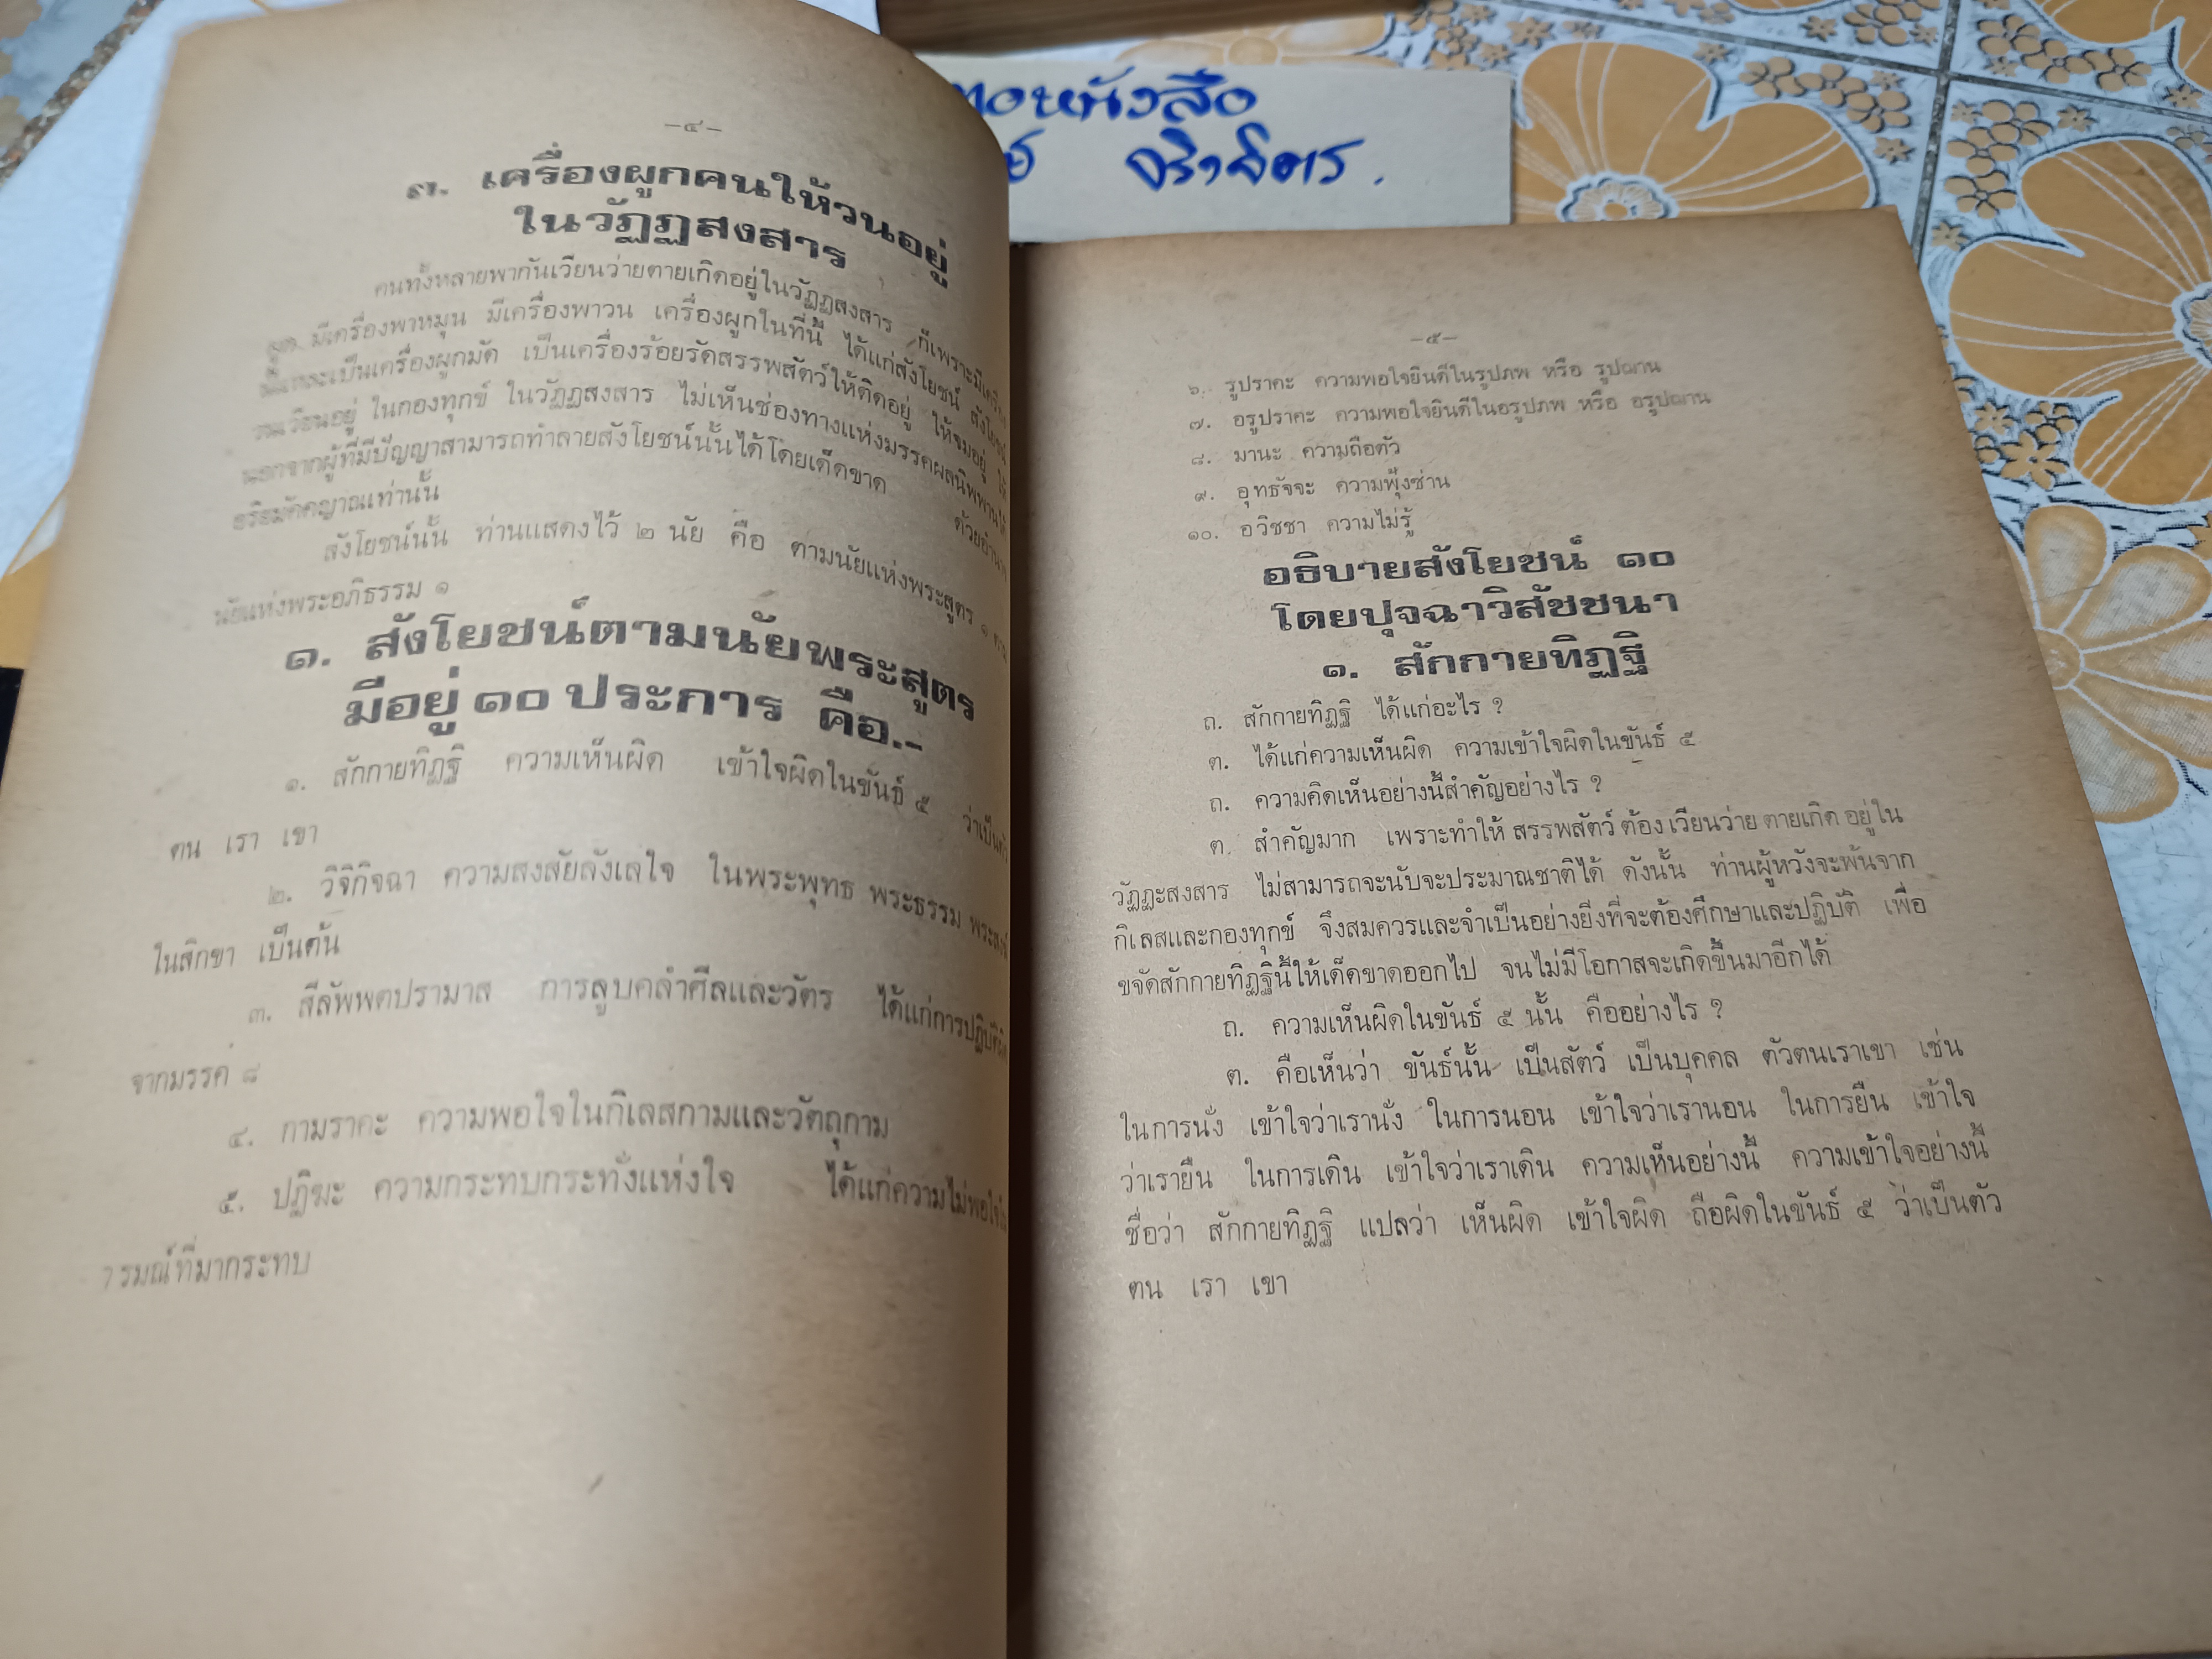 —๔—
๓. เครื่องผูกคนให้วนอยู่
ในวัฏฏสงสาร
คนทั้งหลายพากันเวียนว่ายตายเกิดอยู่ในวัฏฏสงสาร ก็เพราะมีเครื่อง
ผูก มีเครื่องพาหมุน มีเครื่องพาวน เครื่องผูกในที่นี้ ได้แก่สังโยชน์ สังโยชน์
นี้แหละเป็นเครื่องผูกมัด เป็นเครื่องร้อยรัดสรรพสัตว์ให้ติดอยู่ ให้จมอยู่ ให้
วนเวียนอยู่ ในกองทุกข์ ในวัฏฏสงสาร ไม่เห็นช่องทางแห่งมรรคผลนิพพานได้
นอกจากผู้ที่มีปัญญาสามารถทำลายสังโยชน์นั้นได้โดยเด็ดขาด ด้วยอำนาจ
อริยมัคคญาณเท่านั้น
สังโยชน์นั้น ท่านแสดงไว้ ๒ นัย คือ ตามนัยแห่งพระสูตร ๑ ตาม
นัยแห่งพระอภิธรรม ๑
๑. สังโยชน์ตามนัยพระสูตร
มีอยู่ ๑๐ ประการ คือ.-
๑. สักกายทิฏฐิ ความเห็นผิด เข้าใจผิดในขันธ์ ๕ ว่าเป็นตัว
ตน เรา เขา
๒. วิจิกิจฉา ความสงสัยลังเลใจ ในพระพุทธ พระธรรม พระสงฆ์
ในสิกขา เป็นต้น
๓. สีลัพพตปรามาส การลูบคลำศีลและวัตร ได้แก่การปฏิบัติผิด
จากมรรค ๘
๔. กามราคะ ความพอใจในกิเลสกามและวัตถุกาม
๕. ปฏิฆะ ความกระทบกระทั่งแห่งใจ ได้แก่ความไม่พอใจใน
ารมณ์ที่มากระทบ
อหนังสือ
จริงจิตร.
—๕—
๖. รูปราคะ ความพอใจยินดีในรูปภพ หรือ รูปฌาน
๗. อรูปราคะ ความพอใจยินดีในอรูปภพ หรือ อรูปฌาน
๘. มานะ ความถือตัว
๙. อุทธัจจะ ความฟุ้งซ่าน
๑๐. อวิชชา ความไม่รู้
อธิบายสังโยชน์ ๑๐
โดยปุจฉาวิสัชชนา
๑. สักกายทิฏฐิ
ถ. สักกายทิฏฐิ ได้แก่อะไร ?
ต. ได้แก่ความเห็นผิด ความเข้าใจผิดในขันธ์ ๕
ถ. ความคิดเห็นอย่างนี้สำคัญอย่างไร ?
ต. สำคัญมาก เพราะทำให้ สรรพสัตว์ ต้อง เวียนว่าย ตายเกิด อยู่ใน
วัฏฏะสงสาร ไม่สามารถจะนับจะประมาณชาติได้ ดังนั้น ท่านผู้หวังจะพ้นจาก
กิเลสและกองทุกข์ จึงสมควรและจำเป็นอย่างยิ่งที่จะต้องศึกษาและปฏิบัติ เพื่อ
ขจัดสักกายทิฏฐินี้ให้เด็ดขาดออกไป จนไม่มีโอกาสจะเกิดขึ้นมาอีกได้
ถ. ความเห็นผิดในขันธ์ ๕ นั้น คืออย่างไร ?
ต. คือเห็นว่า ขันธ์นั้น เป็นสัตว์ เป็นบุคคล ตัวตนเราเขา เช่น
ในการนั่ง เข้าใจว่าเรานั่ง ในการนอน เข้าใจว่าเรานอน ในการยืน เข้าใจ
ว่าเรายืน ในการเดิน เข้าใจว่าเราเดิน ความเห็นอย่างนี้ ความเข้าใจอย่างนี้
ชื่อว่า สักกายทิฏฐิ แปลว่า เห็นผิด เข้าใจผิด ถือผิดในขันธ์ ๕ ว่าเป็นตัว
ตน เรา เขา